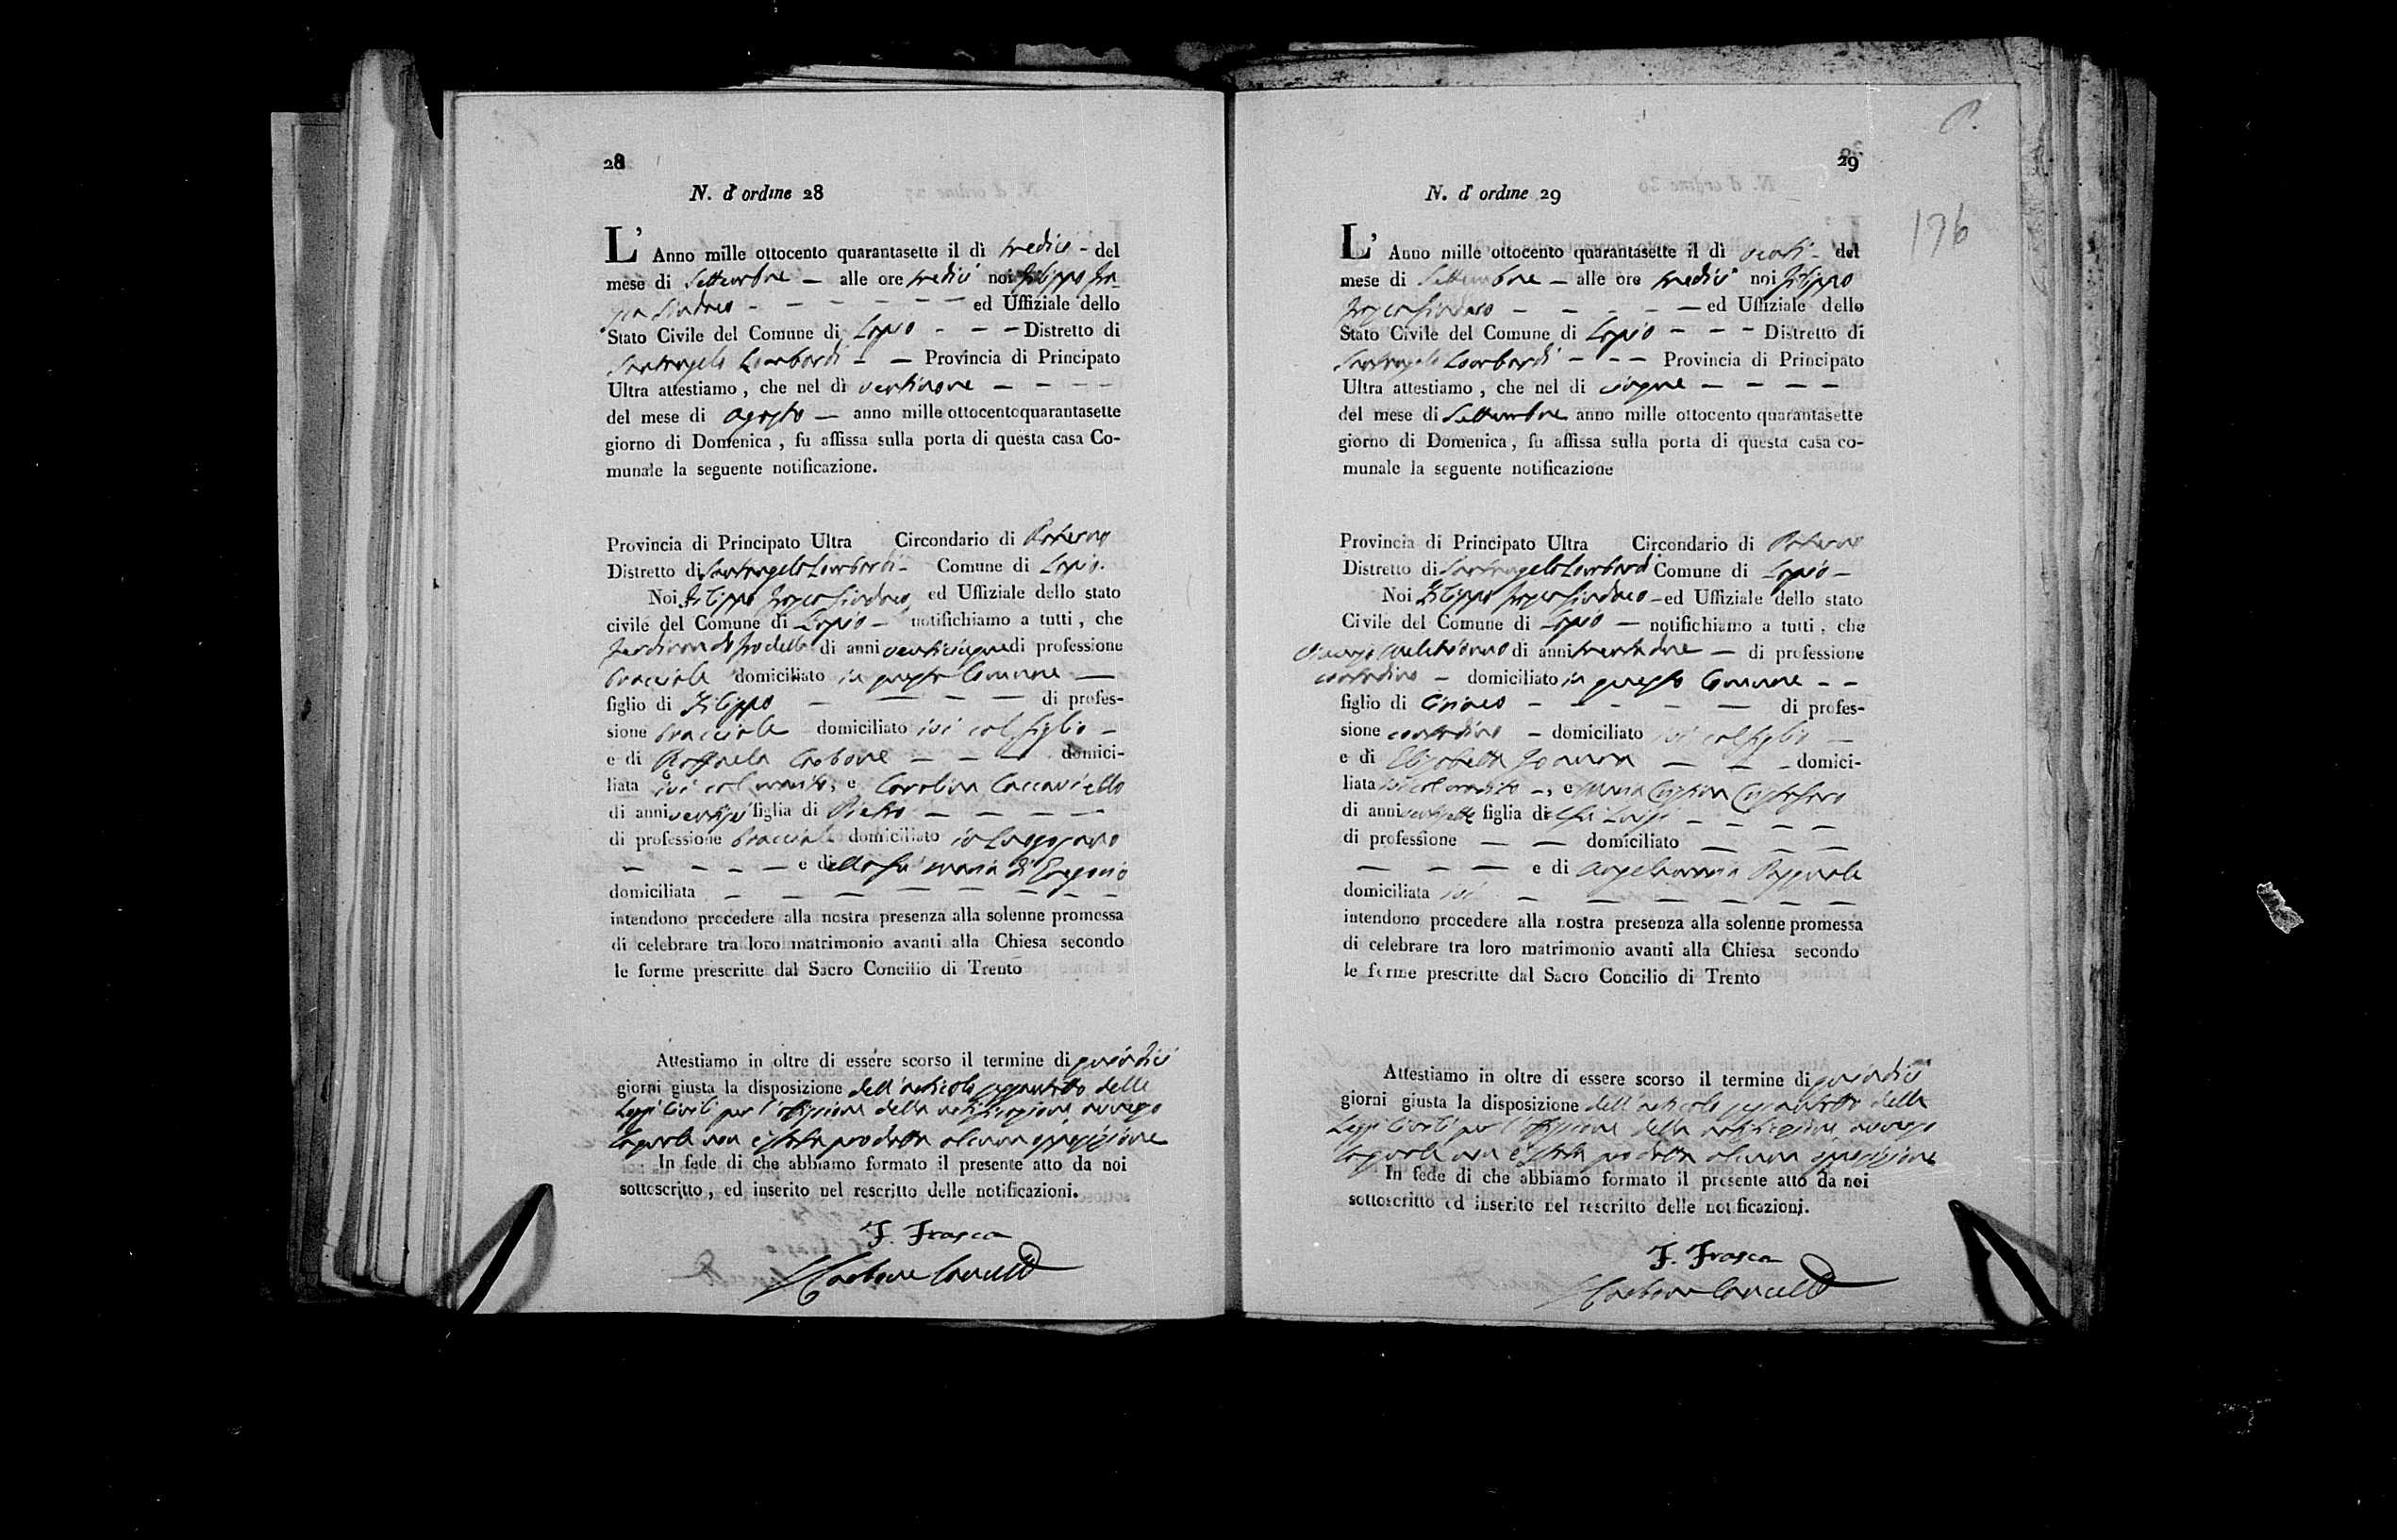 28
N. d'ordine 28
L' Anno mille ottocento quarantasette il dì tredici - del
mese di Settembre — alle ore tredici noi Filippo Fra-
sca Sindaco - — — — — — ed Uffiziale dello
Stato Civile del Comune di Lapio - — — Distretto di
Santangelo Lombardi — — Provincia di Principato
Ultra attestiamo, che nel dì ventinove — — — —
del mese di Agosto — anno mille ottocentoquarantasette
giorno di Domenica, fu affissa sulla porta di questa casa Co-
munale la seguente notificazione.
Provincia di Principato Ultra Circondario di Paterno
Distretto di Santangelo Lombardi - Comune di Lapio.
Noi Filippo Frasca Sindaco, ed Uffiziale dello stato
civile del Comune di Lapio — notifichiamo a tutti, che
Ferdinando di anni venticinque di professione
bracciale domiciliato in questo Comune —
figlio di Filippo — — — — di profes-
sione bracciale domiciliato ivi col figlio —
e di Raffaela Carbone — — — domici-
liata ivi col marito, e Carolina Caccaviello
di anni figlia di Pietro — — — —
di professione bracciale domiciliato in Luogosano
— — — — e di della fu Maria di Gregorio
domiciliata — — — — — — —
intendono procedere alla nostra presenza alla solenne promessa
di celebrare tra loro matrimonio avanti alla Chiesa secondo
le forme prescritte dal Sacro Concilio di Trento
Attestiamo in oltre di essere scorso il termine di quindici
giorni giusta la disposizione dell'articolo sessantotto delle
Leggi Civili per l'affissione della notificazione, avverso
la quale non è stata prodotta alcuna opposizione
In fede di che abbiamo formato il presente atto da noi
sottoscritto, ed inserito nel rescritto delle notificazioni.
F. Frasca
Carbone Cancell
29
176
N. d'ordine 29
L' Anno mille ottocento quarantasette il dì venti - del
mese di Settembre — alle ore tredici noi Filippo
Frasca Sindaco — — — — — ed Uffiziale dello
Stato Civile del Comune di Lapio — — — Distretto di
Santangelo Lombardi — — — Provincia di Principato
Ultra attestiamo, che nel di cinque — — — —
del mese di Settembre anno mille ottocento quarantasette
giorno di Domenica, fu affissa sulla porta di questa casa co-
munale la seguente notificazione
Provincia di Principato Ultra Circondario di Paterno
Distretto di Santangelo Lombardi Comune di Lapio —
Noi Filippo Frasca Sindaco — ed Uffiziale dello stato
Civile del Comune di Lapio — notifichiamo a tutti, che
di anni trentadue — di professione
contadino — domiciliato in questo Comune — —
figlio di Ciriaco — — — — — di profes-
sione contadino — domiciliato ivi col figlio —
e di Elisabetta — — — domici-
liata ivi col marito —, e Maria
di anni ventisette figlia di fu Luigi — — — —
di professione — — domiciliato — — —
— — — e di Angelamaria
domiciliata ivi — — — — — —
intendono procedere alla nostra presenza alla solenne promessa
di celebrare tra loro matrimonio avanti alla Chiesa secondo
le forme prescritte dal Sacro Concilio di Trento
Attestiamo in oltre di essere scorso il termine di quindici
giorni giusta la disposizione dell'articolo sessantotto delle
Leggi Civili per l'affissione della notificazione avverso
la quale non è stata prodotta alcuna opposizione
In fede di che abbiamo formato il presente atto da noi
sottoscritto ed inserito nel rescritto delle notificazioni.
F. Frasca
Carbone Cancell